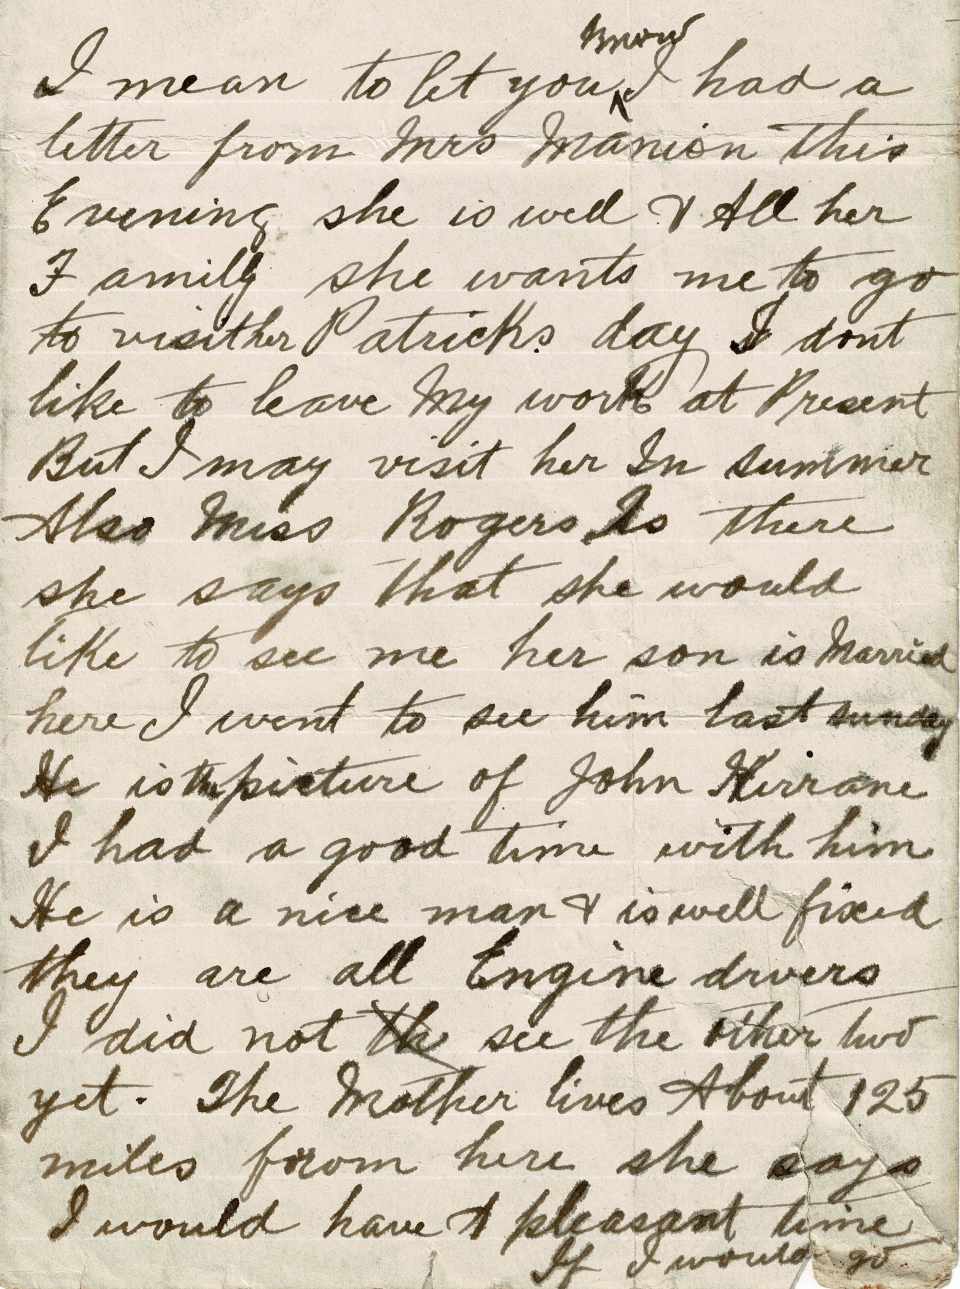 I mean to let you know I had a
letter from Mrs Manion this
Evening she is well & All her
Family she wants me to go
to visit her Patricks day I dont
like to leave My work at Present
But I may visit her In summer
Also Miss Rogers Is there
she says that she would
like to see me her son is Married
here I went to see him last sunday
He is the picture of John Kirrane
I had a good time with him
He is a nice man & is well fixed
they are all Engine drvers
I did not th see the other two
yet. The Mother lives About 125
miles from here she says
I would have A pleasant time
If I would go